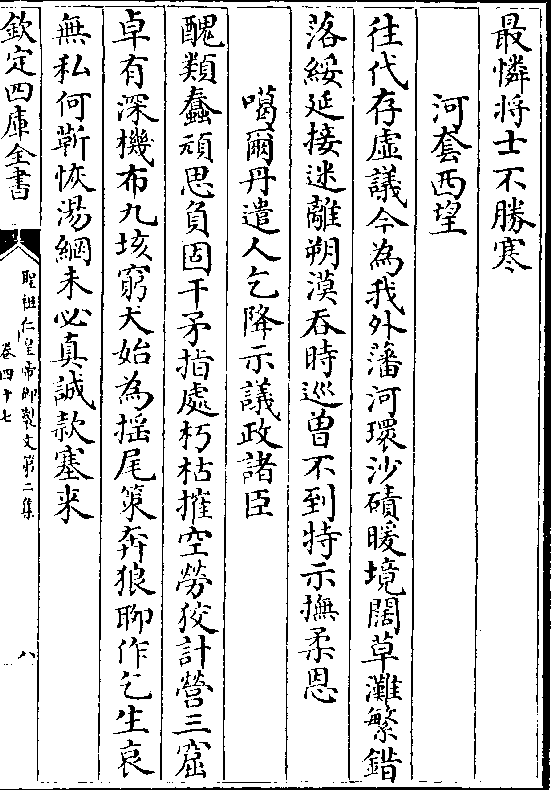 最憐将士不勝寒
河套西望
往代存虛議今為我外藩河環沙磧暖境闊草灘繁錯
落綏延接迷離朔漠吞時巡曽不到特示撫柔恩
噶爾丹遣人乞降示議政諸臣
醜類蠢頑思負固干矛指處朽枯摧空勞狡計營三窟
卓有深機布九垓窮犬始為揺尾䇿奔狼聊作乞生哀
無私何靳恢湯網未必真誠款塞来
欽定四庫全書
聖祖仁皇帝御製文第二集
卷四十七
八